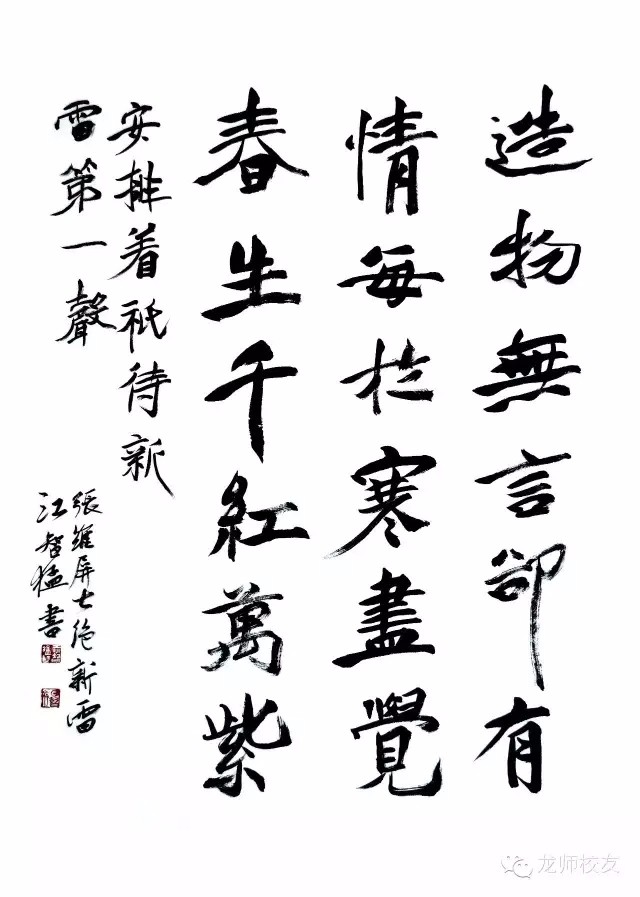 造物無言卻有
情每於寒盡覺
春生千紅萬紫
安排着祇待新
雷第一聲
張維屏七絶新雷
江智猛書
龙师校友